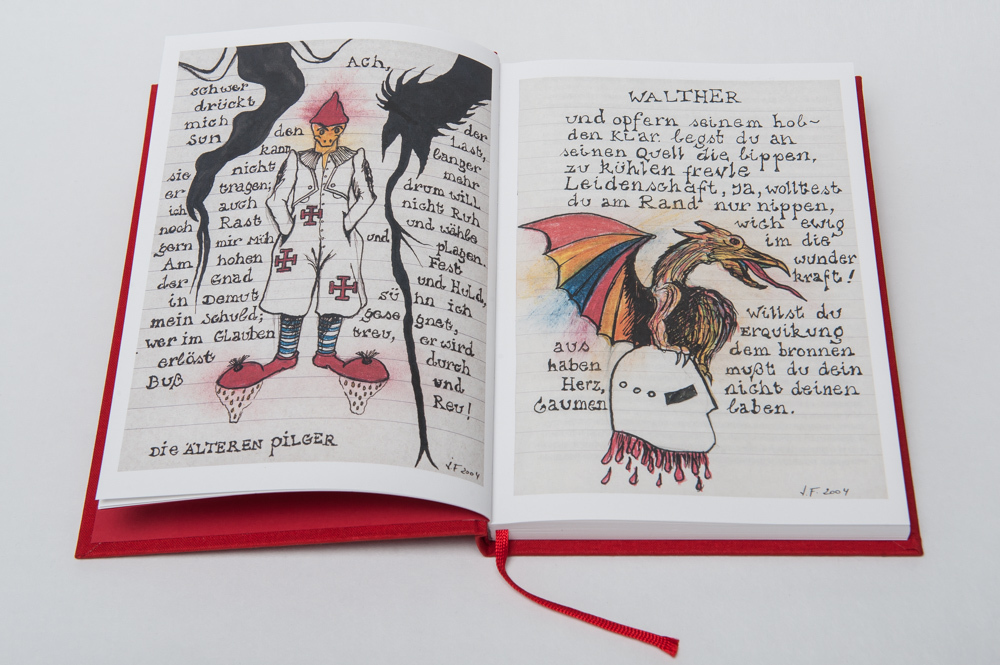 Ach,
schwer
drückt
mich
Sün den der
kann Last,
sie nicht langer
er tragen; mehr
ich auch drum will
noch Rast nicht Ruh
gern mir Müh und und wähle
Am hohen plagen.
der Gnad Fest
in Demut und Huld,
mein Schuld; sü hn ich
gese gnet,
wer im Glauben treu, er wird
erlöst durch
Buß und
Reu!
DIE ÄLTEREN PILGER
J.F. 2004
WALTHER
und opfern seinem hol-
den Klar. legst du an
seinen Quell die lippen,
zu kühlen frevle
Leidenschaft, ja, wolltest
du am Rand nur nippen,
wich ewig
im die
wunder
kraft!
Willst du
Erquikung
aus dem bronnen
haben mußt du dein
Herz, nicht deinen
Gaumen laben.
J.F. 2004